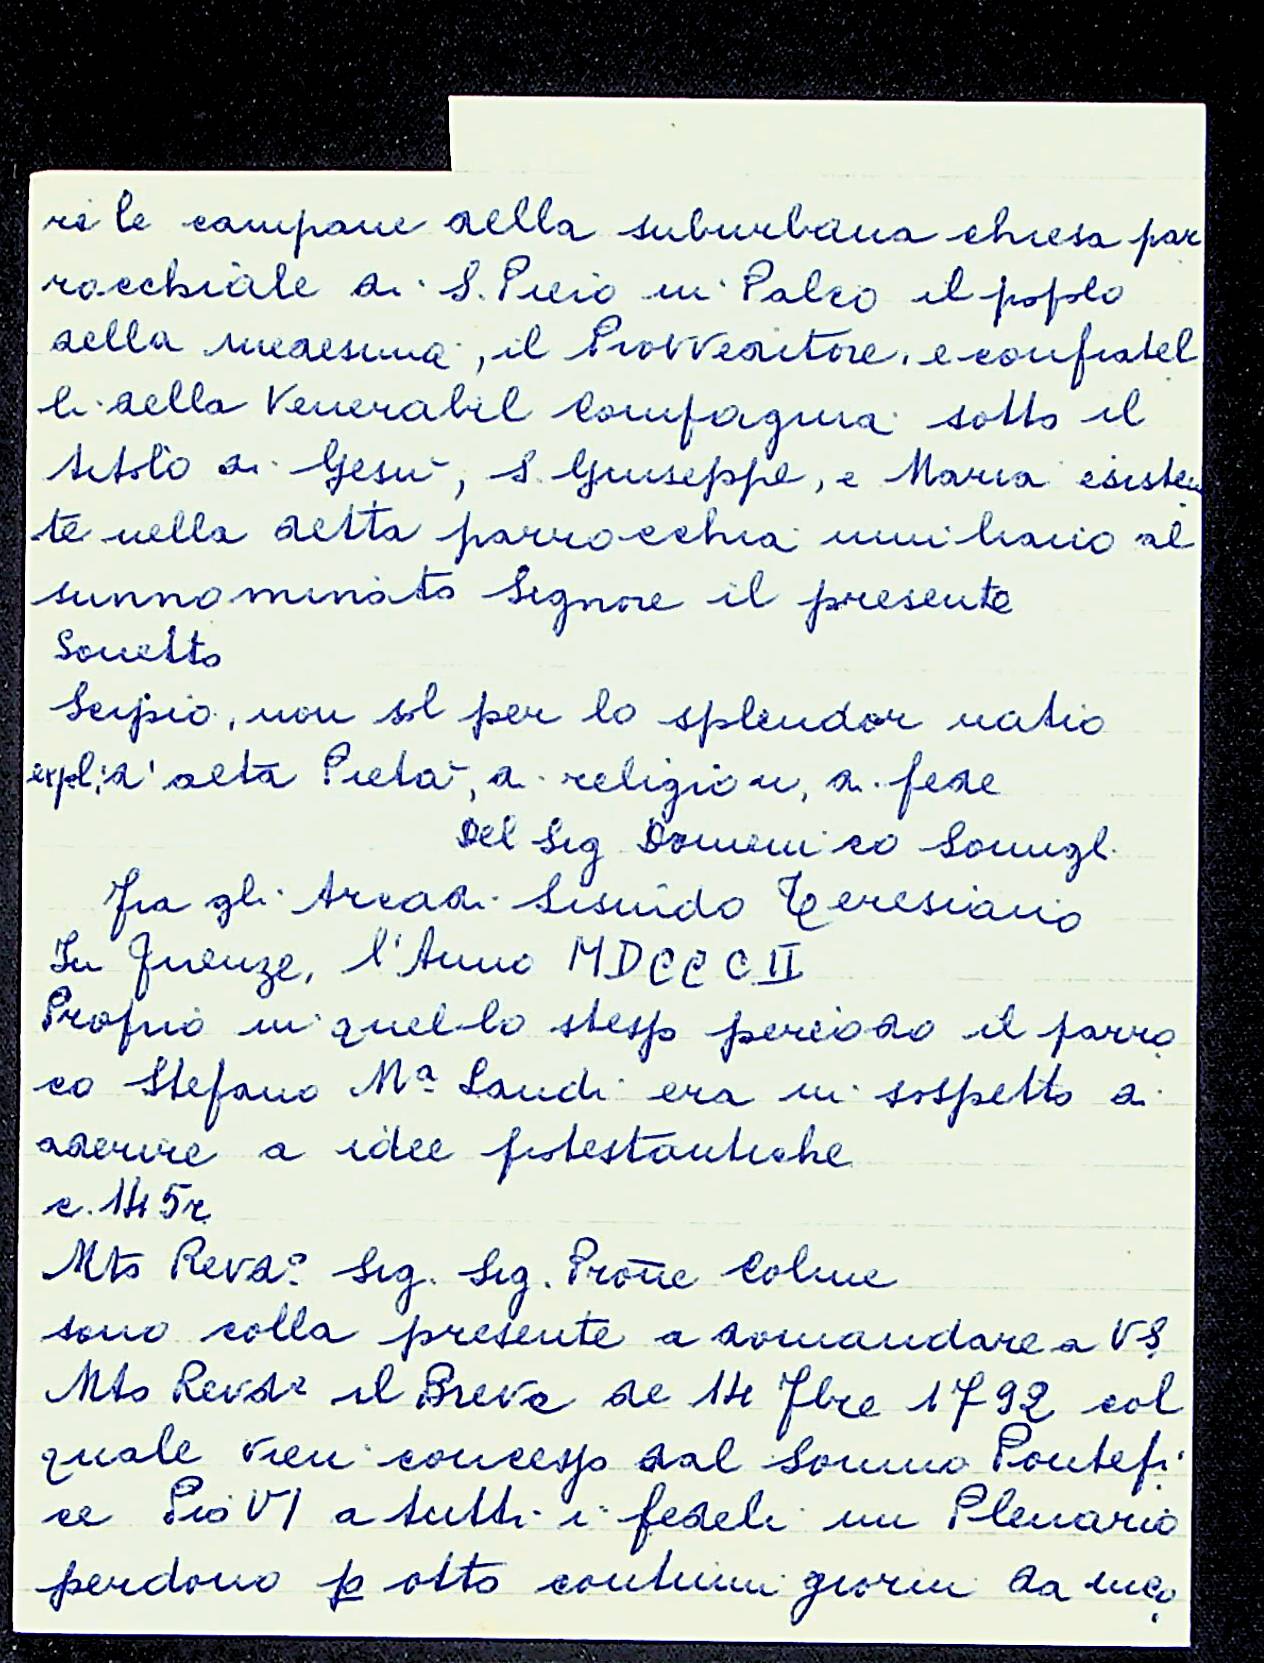 ri le campane della suburbana chiesa par
rocchiale di S. Piero in Palco il popolo
della medesima, il Provveditore, e confratel
li della Venerabil Compagnia sotto il
titolo di Gesù, S. Giuseppe, e Maria esisten
te nella detta parrocchia umiliano al
sunnominato Signore il presente
Sonetto
Scipio, non sol per lo splendor natio
expl: d'alta Pietà, di religion, di fede
Del Sig Domenico Somigl.
fra gli Arcadi Teresiano
In Firenze, l'Anno MDCCCII
Proprio in quello stesso periodo il parro
co Stefano Mª Landi era in sospetto di
aderire a idee protestantiche
c. 145r
Mto Revdº Sig. Sig. Prone Colme
sono colla presente a domandare a VS
Mto Revdª il Breve de 14 7bre 1792 col
quale vien concesso dal Sommo Pontefi
ce Pio VI a tutti i fedeli un Plenario
perdono p otto continui giorni da inco